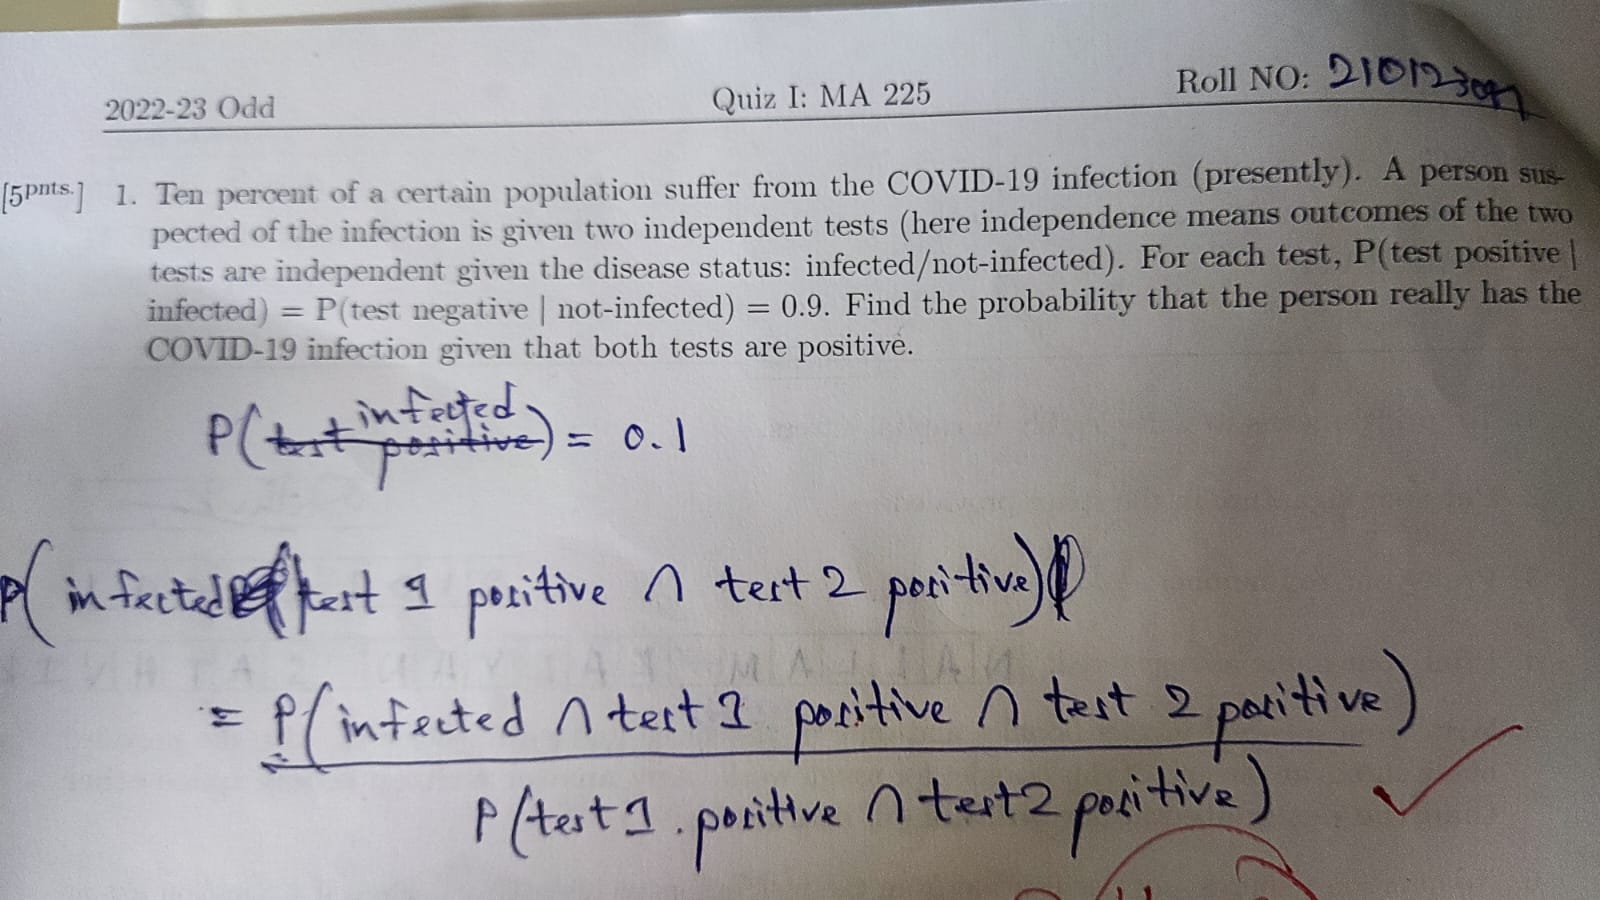 2022-23 Odd Quiz I: MA 225 Roll NO:
[5pnts.] 1. Ten percent of a certain population suffer from the COVID-19 infection (presently). A person sus-
pected of the infection is given two independent tests (here independence means outcomes of the two
tests are independent given the disease status: infected/not-infected). For each test, P(test positive |
infected) = P(test negative | not-infected) = 0.9. Find the probability that the person really has the
COVID-19 infection given that both tests are positive.
infected
P(test positive) = 0.1
P(infected | test 1 positive ∩ test 2 positive)
= P(infected ∩ test 1 positive ∩ test 2 positive)
P(test 1 positive ∩ test 2 positive)